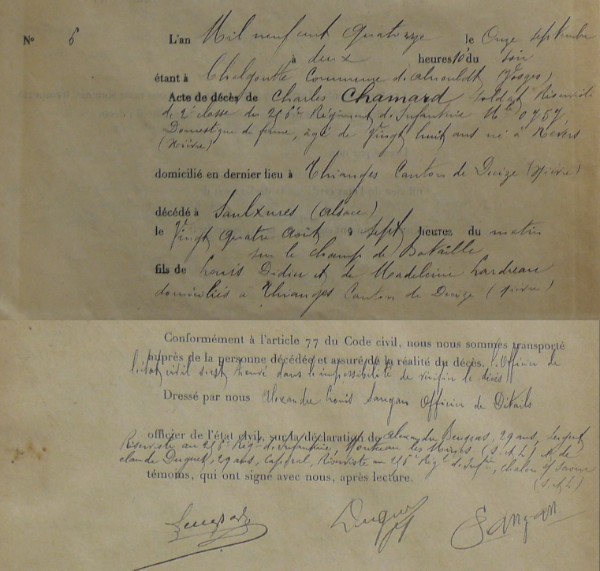 N° 6 L'an Mil neuf cent quatorze le Onze septembre
à deux heures 10' du soir
étant à Chalgoutte Commune d'Anould (Vosges)
Acte de décès de Charles Chamard soldat Réserviste
de 2e classe du 256me Régiment d'Infanterie Mle 0757
Domestique de ferme, âgé de Vingt huit ans né à Nevers
(Nièvre)
domicilié en dernier lieu à Thianges Canton de Decize (Nièvre)
décédé à Saulxures (Alsace)
le Vingt quatre Août à sept heures du matin
sur le champ de Bataille
fils de Louis Didier et de Madeleine
domiciliés à Thianges Canton de Decize (Nièvre)
Conformément à l'article 77 du Code civil, nous nous sommes transporté
auprès de la personne décédée et assuré de la réalité du décès. L'Officier de
l'état civil s'est trouvé dans l'impossibilité de
Dressé par nous Alexandre Louis Sangan Officier de Détails
officier de l'état civil, sur la déclaration de Alexandre 29 ans, sergent
Réserviste au Régt d'Infanterie, Montceau les Mines (S.&L.) & de
Claude Duguet, 29 ans, Caporal, Réserviste au Régt d'Infie, Chalon s/ Saône
témoins, qui ont signé avec nous, après lecture. (S.&L)
Duguet Sangan